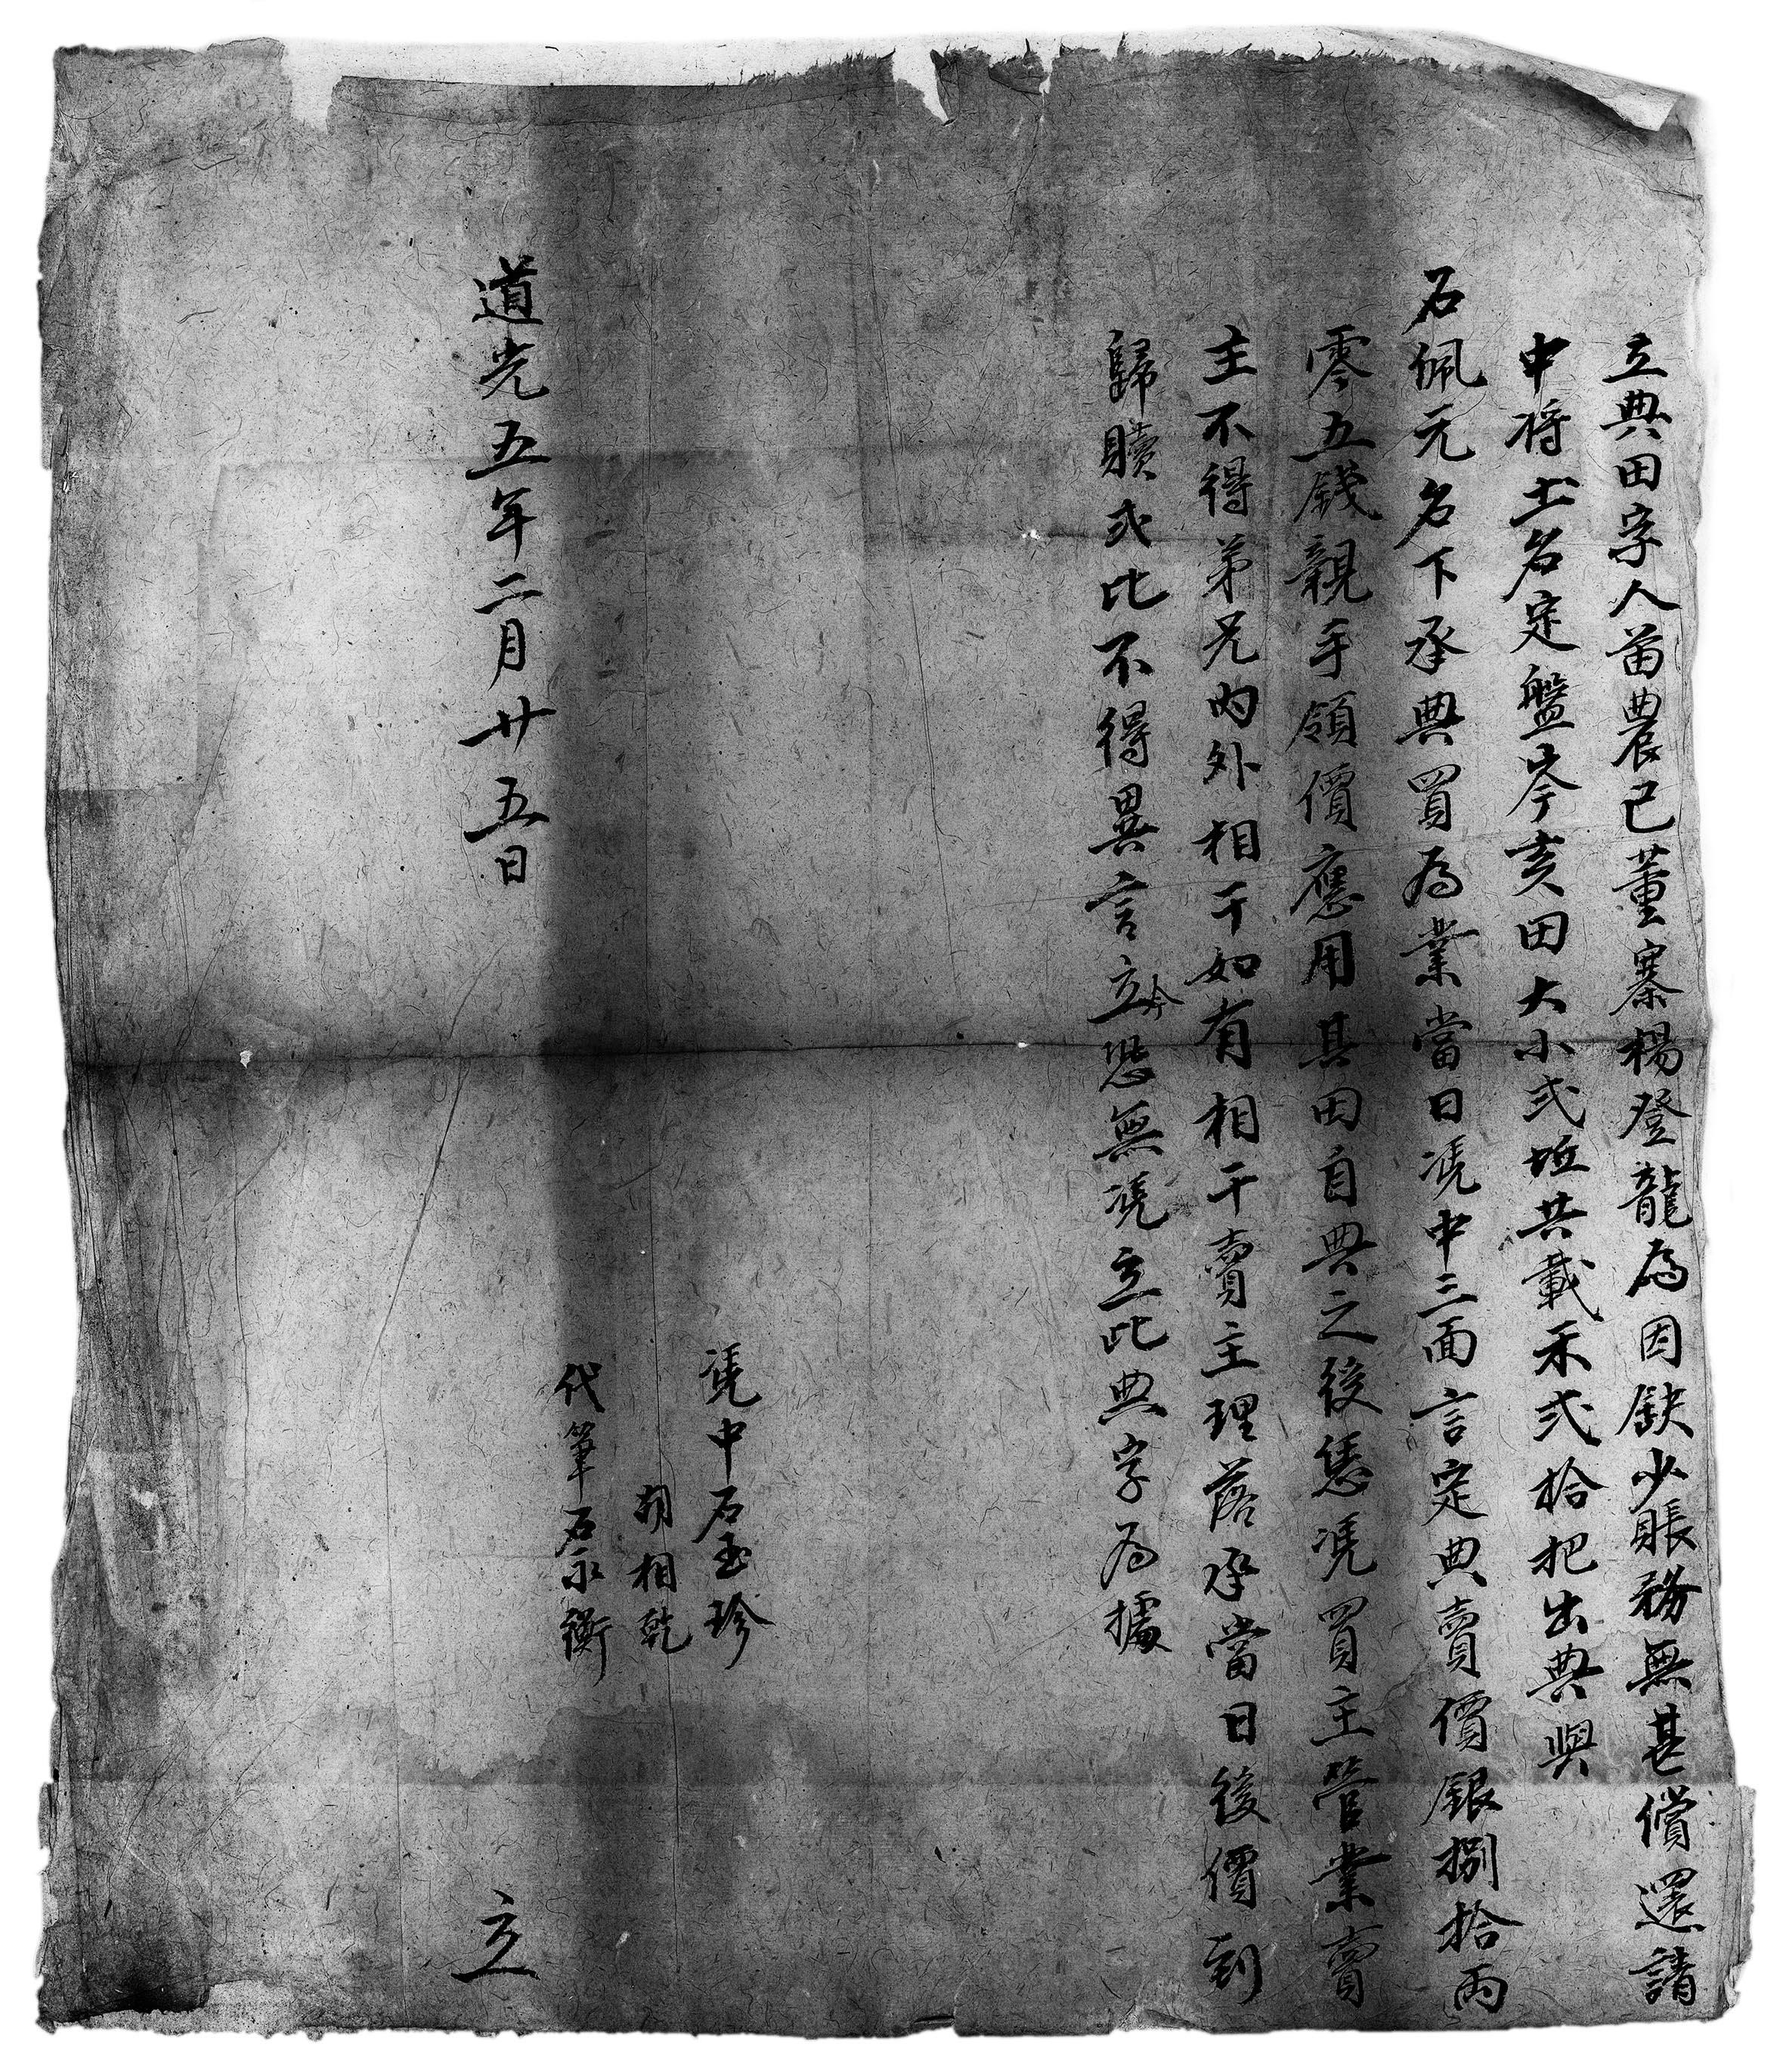 立典田字人苗農己董寨楊登龍為因缺少賬務無甚償還請
中将土名定盤岑亥田大小弍坵共載禾弍拾把出典與
石佩元名下承典買為業當日凴中三面言定典賣價銀捌拾兩
零五錢親手領價應用其田自典之後恁凴買主管業賣
主不得弟兄內外相干如有相干賣主理落承當日後價到
歸贖或比不得異言立今恐無凴立此典字為據
凴中石玉珍
胡相乾
代筆石永衡
道光五年二月廿五日立